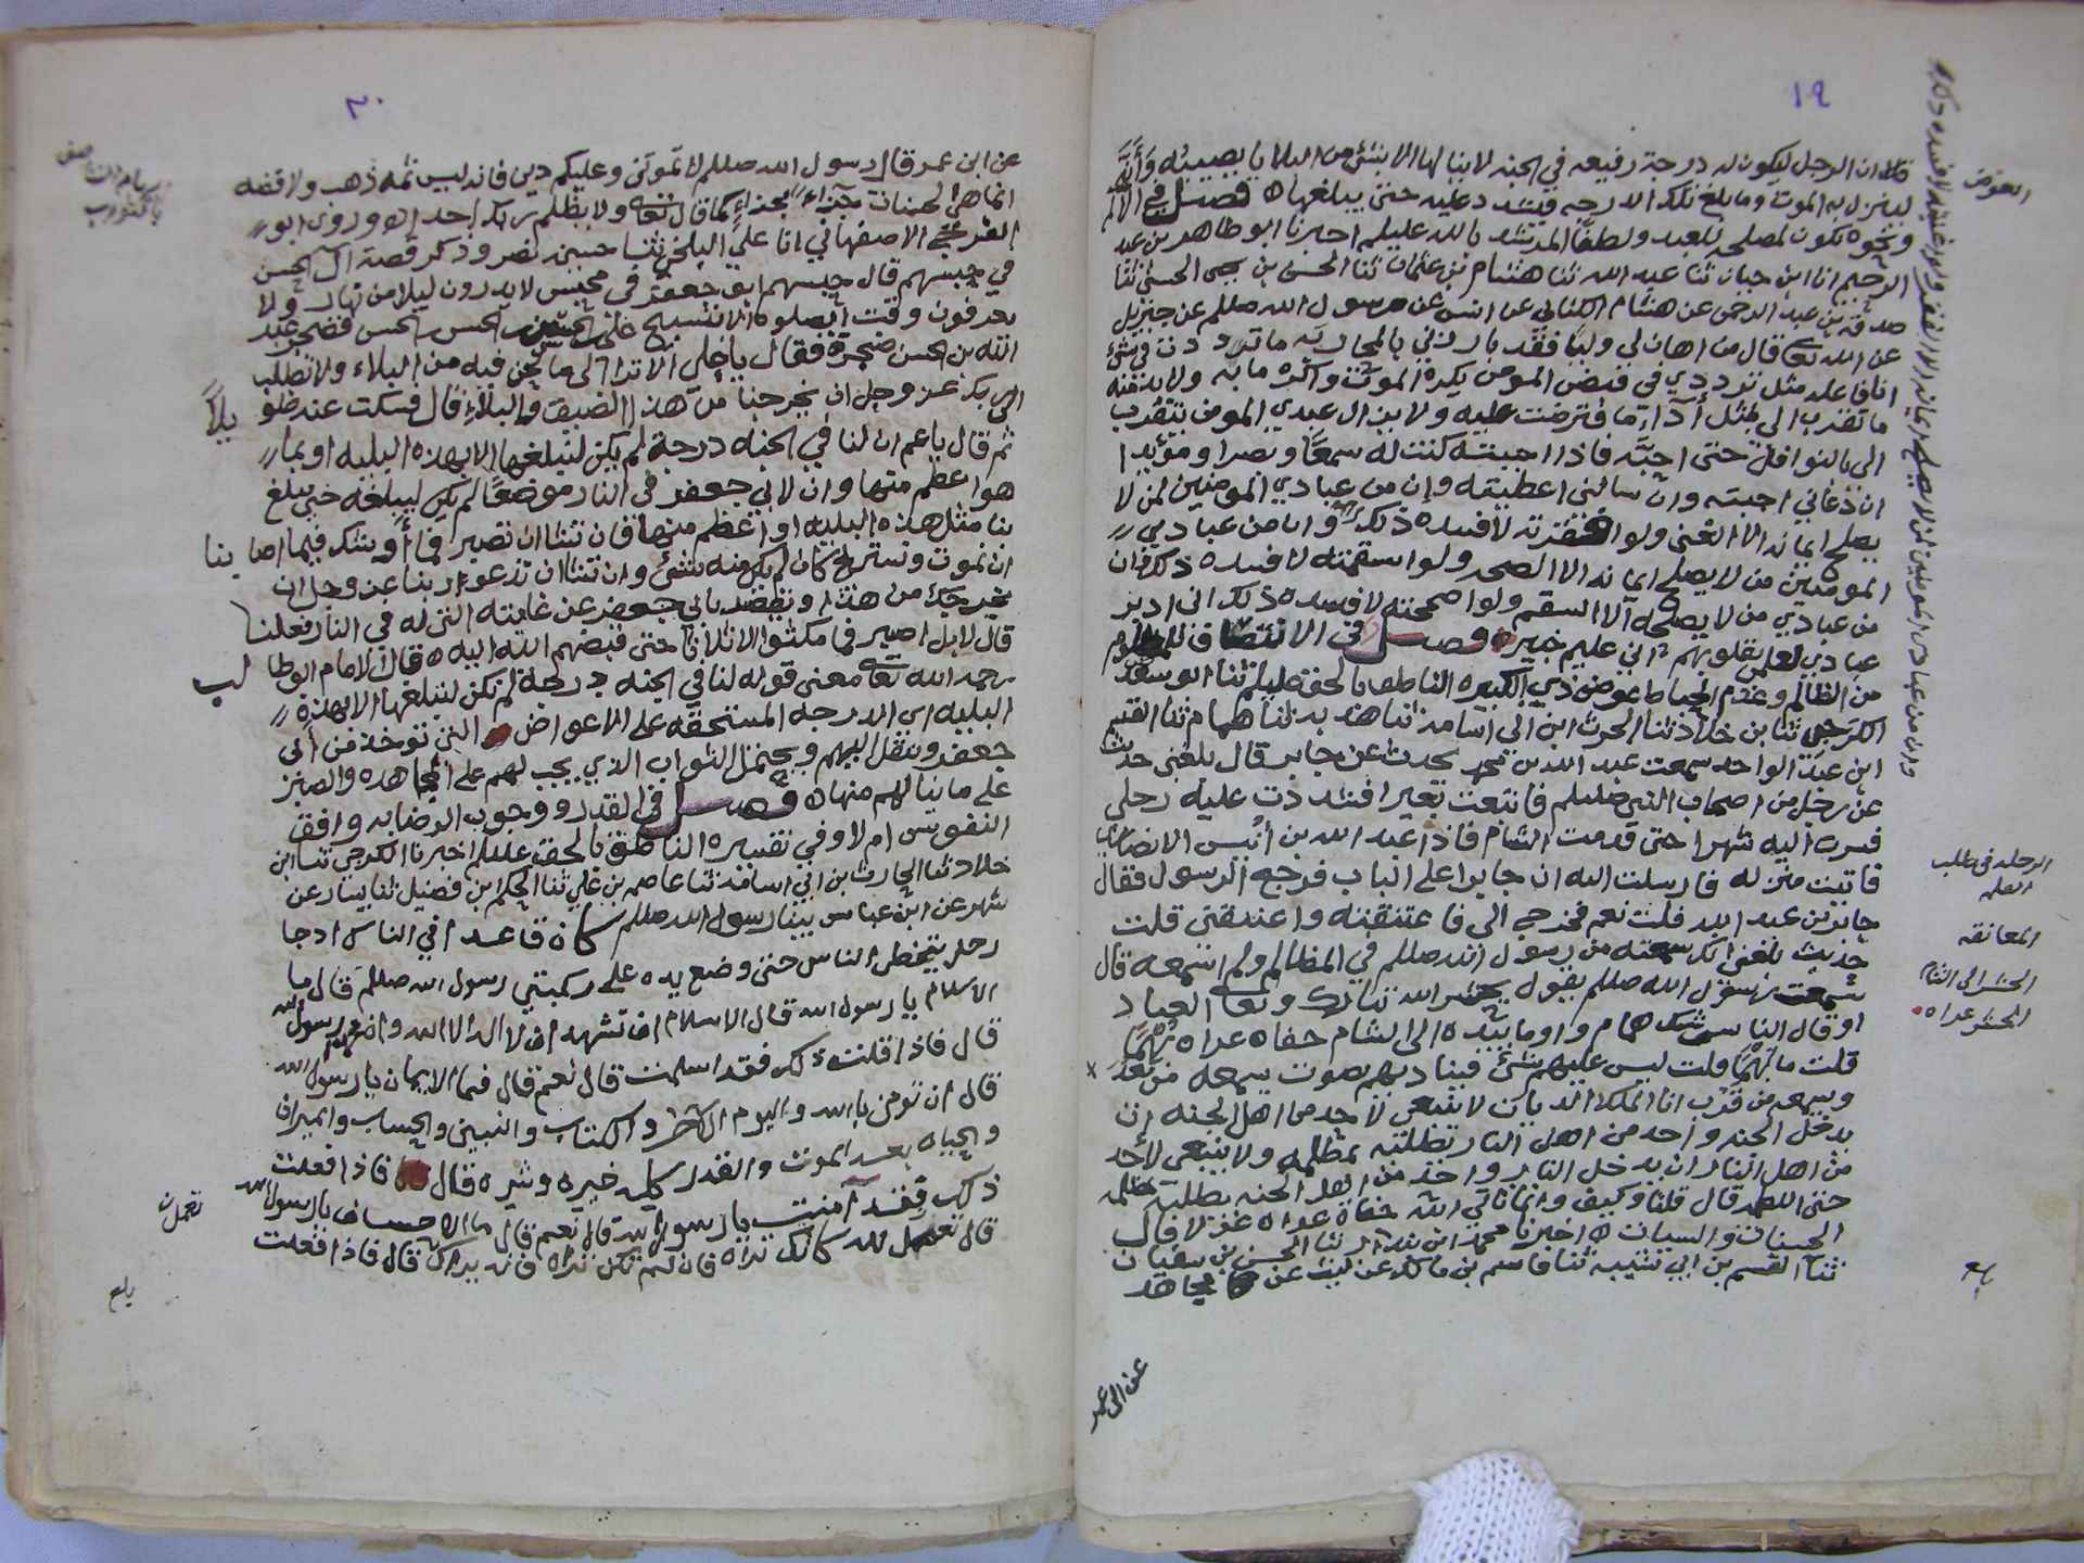 ١٩
العوض
قال ان الرجل ليكون له درجة رفيعه في الجنه لا ينالها الا بشئ من البلايا يصيبه وأنه
لينزل به الموت وما بلغ تلك الدرجه فيشدد عليه حتى يبلغها ه فصل في الالم
ونحوه يكون لمصلحه للعبد ولطفا المرشد بالله عليلم اخبرنا ابو طاهر بن عبد
الرحيم انا ابن حيان ثنا عبد الله ثنا هشام بن عثمان ثنا الحسن بن يحيى الحسني ثنا
صدقة بن عبد الرحمن عن هشام الكناني عن انس عن رسول الله صلعم عن جبريل
عن الله تعالى قال من اهان لي وليا فقد بارزني بالمحاربه ما ترددت في شئ
انا فاعله مثل ترددي في قبض المومن يكره الموت واكره مآبه ولا بد منه
ما تقرب الي بمثل أداء ما فترضت عليه ولا يزال عبدي المومن يتقرب
الي بالنوافل حتى احبه فاذا احببته كنت له سمعا وبصرا ومؤيدا
ان دعاني اجبته وان سالني اعطيته وان من عبادي المومنين لمن لا
يصلح ايمانه الا الغنى ولو افقرته لافسده ذلك وان من عبادي
المومنين من لا يصلح ايمانه الا الصحه ولو اسقمته لافسده ذلك وان
من عبادي من لا يصلحه الا السقم ولو اصححته لافسده ذلك اني ادبر
عبادي لعلمي بقلوبهم اني عليم خبير ه فصل في الانتصاف للمظلوم
من الظالم وعدم احباط عوض ذي الكبيره الناطق بالحق عليلم ثنا ابو سعد
الكرجي ثنا بن خلاد ثنا الحرث ابن ابي اسامه ثنا هدبه ثنا همام ثنا القسم
ابن عبد الواحد سمعت عبد الله بن محمد يحدث عن جابر قال بلغني حديث
عن رجل من اصحاب النبي صلعم فابتعت بعيرا فشددت عليه رحلي
فسرت اليه شهرا حتى قدمت الشام فاذا عبد الله بن أنيس الانصاري
فاتيت منزله فارسلت اليه ان جابرا على الباب فرجع الرسول فقال
جابر بن عبد الله قلت نعم فخرج الي فاعتنقته واعتنقني قلت
حديث بلغني انك سمعته من رسول الله صلعم في المظالم ولم اسمعه قال
سمعت رسول الله صلعم يقول يحشر الله تبارك وتعالى العباد
او قال الناس شك همام واوما بيده الى الشام حفاه عراه بُهْمًا
قلت ما بُهْمًا قلت ليس عليهم شئ فيناديهم بصوت يسمعه من بعد
ويسمعه من قرب انا الملك الديان لا ينبغي لاحد من اهل الجنه ان
يدخل الجنه واحد من اهل النار تطلبه بمظلمه ولا ينبغي لاحد
من اهل النار ان يدخل النار واحد من اهل الجنه يطلبه بمظلمه
حتى اللطمه قال قلنا وكيف وانما ناتي الله حفاة عراه غرلا قال
الحسنات والسيات ه اخبرنا محمد ابن بندار ثنا الحسن بن سفيان
ثنا القسم بن ابي شيبه ثنا قاسم بن مالك عن ليث عن مجاهد
الرحله في طلب
العلم
المعانقه
الحشر الى الشام
الحشر عراه
٢٠
عن ابن عمر قال رسول الله صلعم لا تموتن وعليكم دين فانه ليس ثمه ذهب ولا فضه
انما هي الحسنات جزاء بجزاء كما قال تعالى ولا يظلم ربك احدا ه وروى ابو
الفرج الاصفهاني انا علي البلخي ثنا حسين نصر وذكر قصة ال الحسن
في حبسهم قال حبسهم ابو جعفر في محبس لا يدرون ليلا من نهار ولا
يعرفون وقت الصلوه الا بتسبيح علي بن الحسن بن الحسن فضجر عبد
الله بن الحسن ضجرة فقال يا علي الا ترا الى ما نحن فيه من البلاء ولا تطلب
الى ربك عز وجل ان يخرجنا من هذا الضيق والبلاء قال فسكت عنه طويلاً
ثم قال يا عم ان لنا في الجنه درجة لم يكن لنبلغها الا بهذه البليه او بما
هو اعظم منها وان لابي جعفر في النار موضعا لم يكن ليبلغه حتى يبلغ
بنا مثل هذه البليه او اعظم منها فان تشا ان تصبر فما أوشك فيما اصابنا
ان نموت ونستريح كان لم يكن منه شئ وان تشا ان تدعو ربنا عز وجل ان
يخرجك من هذا ويقصر بابي جعفر عن غايته التي له في النار فعلنا
قال لا بل اصبر فما مكثوا الا ثلاثا حتى قبضهم الله اليه ه قال الامام ابو طالب
رحمه الله تعالى معنى قوله لنا في الجنه درجة لم تكن لنبلغها الا بهذه
البليه اي الدرجه المستحقه على الاعواض التي توخذ من أبي
جعفر وينقل اليهم ويحتمل الثواب الذي يجب لهم على المجاهده والصبر
على ما ينالهم منها ه فصل في القدر ووجوب الرضا به وافق
النفوس ام لا وفي تفسيره الناطق بالحق عليلم اخبرنا الكرجي ثنا ابن
خلاد ثنا الحارث بن ابي اسامه ثنا عاصم بن علي ثنا الحكم ابن فضيل ثنا يسار عن
شهر عن ابن عباس بينا رسول الله صلعم كان قاعدا في الناس اذ جا
رجل يتخطى الناس حتى وضع يده على ركبتي رسول الله صلعم قال ما
الاسلام يا رسول الله قال الاسلام ان تشهد ان لا اله الا الله واني رسول الله
قال فاذا قلت ذلك فقد اسلمت قال نعم قال فما الايمان يا رسول الله
قال ان تومن بالله واليوم الآخر والكتاب والنبيين والحساب والميزان
والحياه بعد الموت والقدر كله خيره وشره قال فاذا فعلت
ذلك فقد آمنت يا رسول الله قال نعم قال ما الاحسان يا رسول الله
قال تعمل لله كانك تراه فان لم تكن تراه فانه يراك قال فاذا فعلت